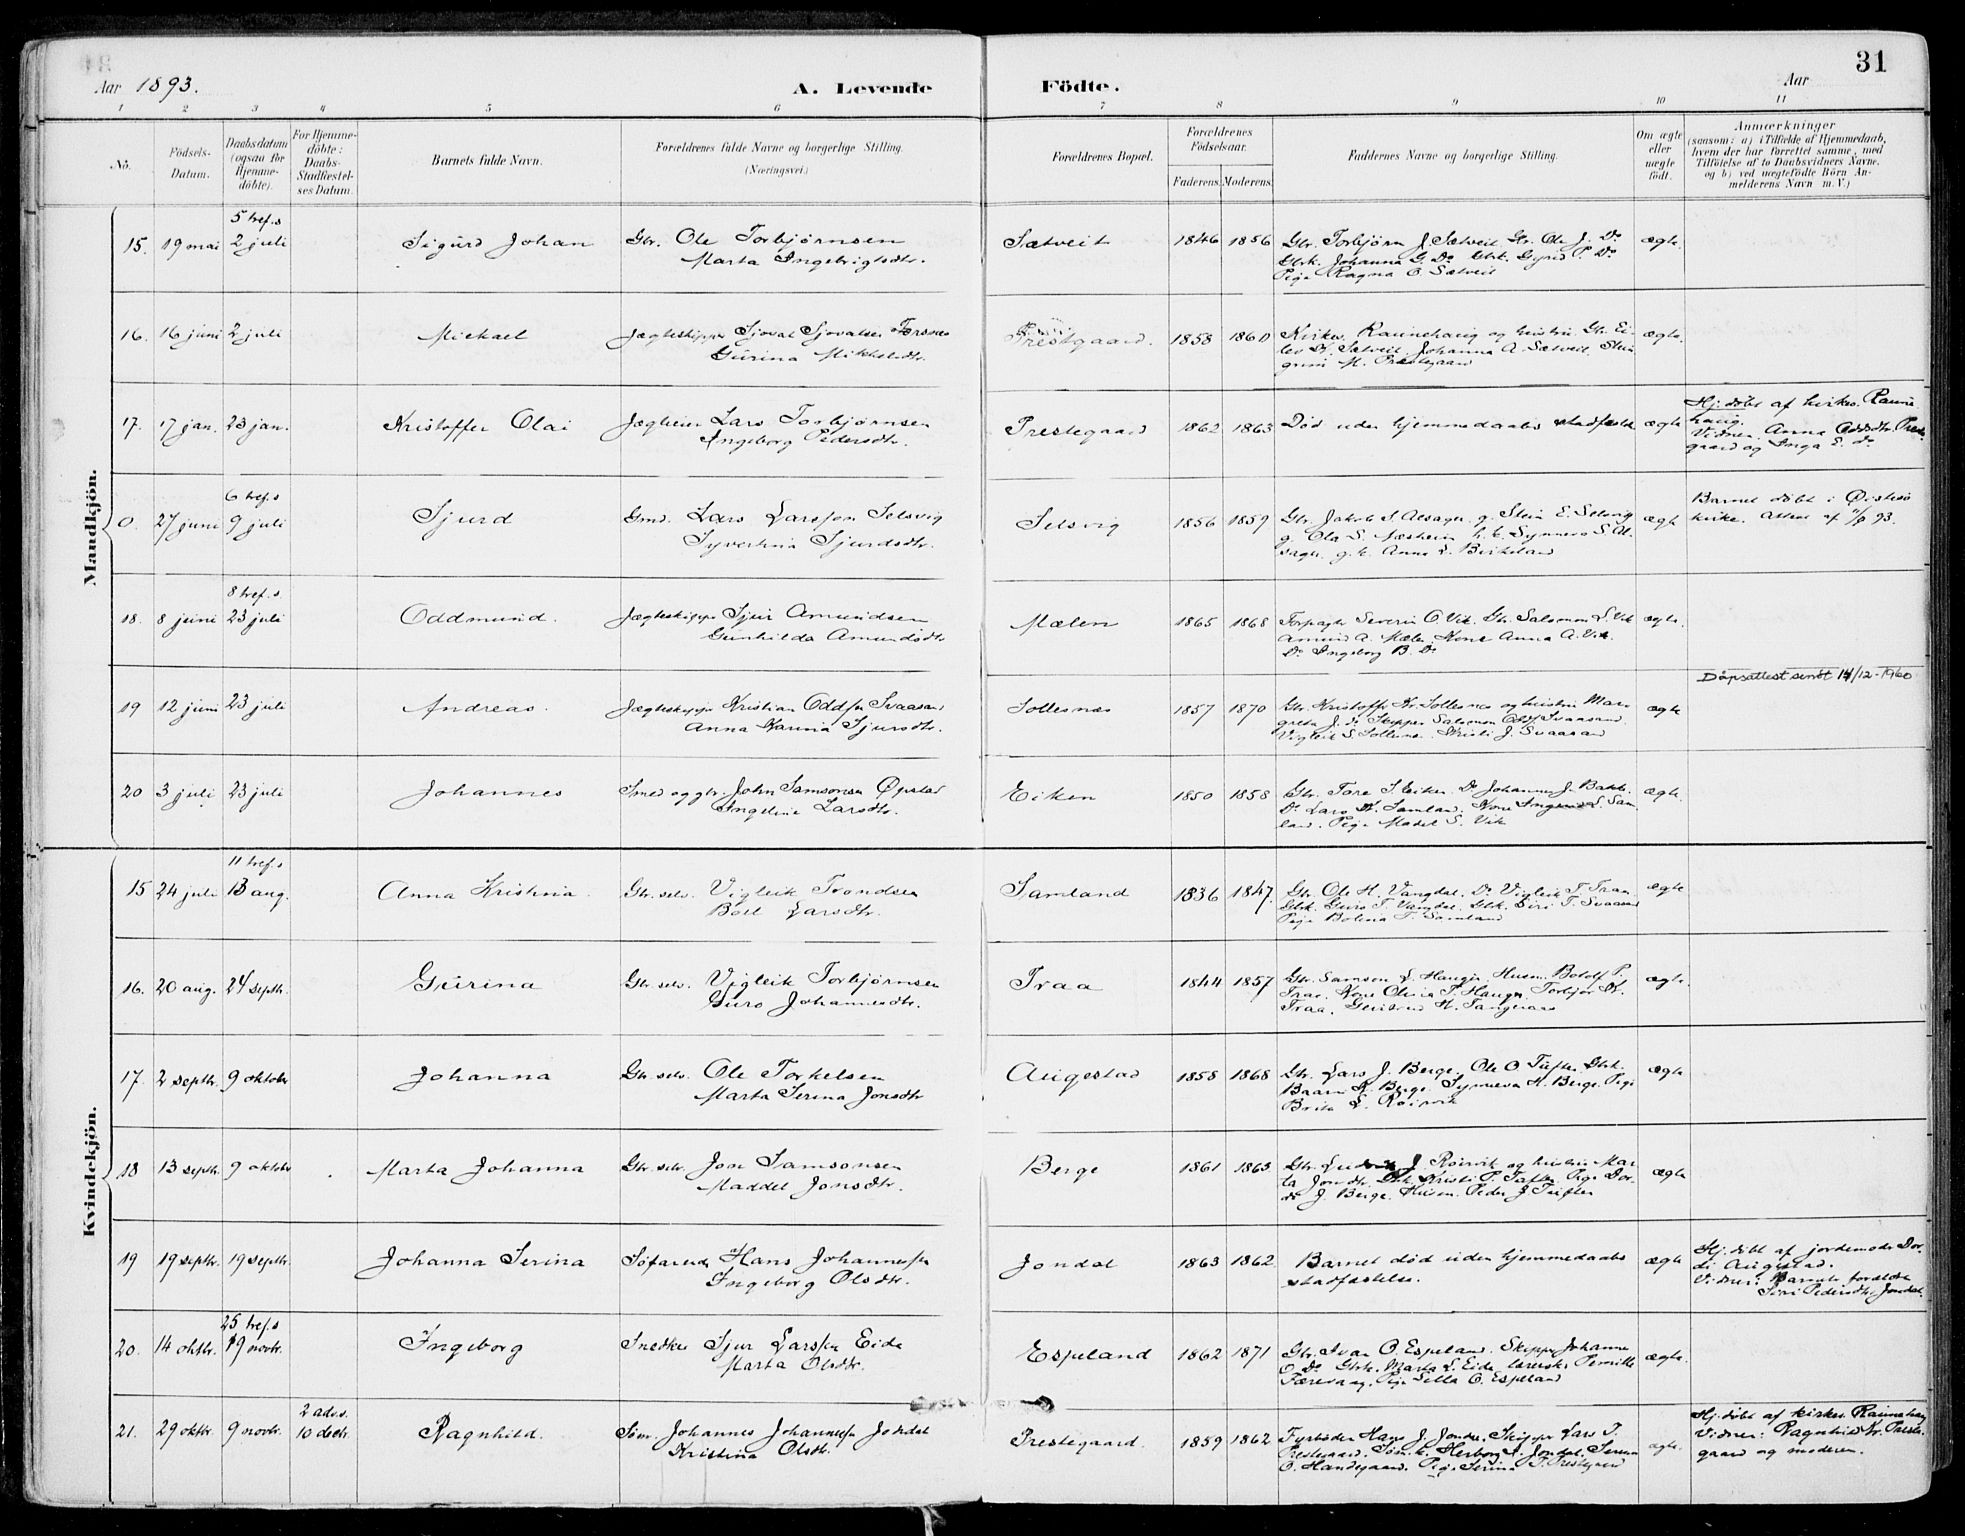 31
Aar 1893.
A. Levende Födte.
Aar
1 2 3 4 5 6 7 8 9 10 11
No.
Födsels-Datum.
Daabsdatum (ogsaa for Hjemme-döbte).
For Hjemme-döbte: Daabs-Stadfæstel-ses Datum.
Barnets fulde Navn.
Forældrenes fulde Navne og borgerlige Stilling. (Næringsvei.)
Forældrenes Bopæl.
Forældrenes Födselsaar.
Faderens. Moderens.
Faddernes Navne og borgerlige Stilling.
Om ægte eller uægte födt.
Anmærkninger
(saasom: a) i Tilfælde af Hjemmedaab, hvem der har forrettet samme, med Tilföielse af to Daabsvidners Navne, og b) ved uægtefödte Börn An-melderens Navn m. V.)
Mandkjön.
5 tref. s
15. 19 mai 2 juli Sigurd Johan Gbr. Ole Torbjørnsen
Marta Ingebrigtsdtr.
Sætveit 1846 1856 Gbr. Torbjørn J. Sætveit. Gbr. Ole J. Do
Gbrk. Johanna G. Do Gbrk. Gyrid P. Do
Pige Ragna O. Sætveit
ægte.
16. 16 juni 2 juli Mickael Jægteskipper Sjovat Sjovatsen
Gurina Mikkelsdtr.
Prestgaard. 1858 1860 Kirkes. Raunehaug og hustru Gbr. Ei-
lev Sætveit Johanna A. Sætveit.
M. Prestegaard
ægte.
17. 17 jan. 23 jan. Kristoffer Olai Jægteim Lars Torbjørnsen
Ingeborg Pedersdtr.
Prestegaard 1862 1863 Død uden hjemmedaabs stadfæstelse ægte
Hj. døbt af kirkes. Raune
haug.
Vidner. Anna Oddsdtr. Preste-
gaard og Inga E. do
6 tref. s
0. 27 juni 9 juli Sjurd Gmd. Lars Larssen Selsvig
Syvertina Sjurdsdtr.
Selsvig 1856 1859 Gbr. Jakob S. Alsager g. Stein E. Selsvig
g. Ola S. Næsheim h.k. Synneva S. Al-
sager g.k. Anna L. Birkeland
ægte
Barnet døbt i Øistesø
kirke. Attest af 11/9 93.
8 tref. s.
18. 8 juni 23 juli Oddmund. Jægteskipper Sjur Amundsen
Gunhilda Amundsdtr
Mælen 1865 1868 Severin O. Vik. Gbr. Salomon S. Vik
Amund A. Mælen. Kone Anna A. Vik.
Do Ingeborg B. Do
ægte.
Dåpsattest sendt 14/12-1960
19 12 juni 23 juli Andreas. Jægteskipper Kristian Oddsen Svaasand
Anna Karina Sjursdtr.
Sollesnæs 1857 1870 Gbr. Kristoffer K. Sollesnes og hustru Mar-
greta J. do Skipper Salomon Olss. Svaasand.
Vigleik S. Sollesnes. Kristi J. Svaasand
ægte
20 3 juli 23 juli Johannes Smed og gbr. John Samsonsen Ørstad
Ingeline Larsdtr.
Eiken 1850 1858 Gbr. Tore S. Eiken. Do Johannes J. Bakke.
Do Lars K. Samland. Kone S. Sam-
land. Pige Madel S. Vik
ægte.
Kvindekjön.
11 tref. s
15 24 juli 13 aug. Anna Kristina Gbr. selv. Vigleik Trondsen
Boel Larsdtr.
Samland 1836 1847. Gbr. Ole H. Vangdal. Do Vigleik T. Traa.
Gbrk. Guro T. Vangdal. Gbk. Siri T. Svaasand
Pige Bolena T. Samland
ægte
16. 20 aug. 24 septbr. Gurina Gbr. selv. Vigleik Torbjørnsen
Guro Johannesdtr.
Traa 1844 1857 Gbr. Samson L. Haugje. Husm. Botolf P.
Traa. Kone T. Haugen. Torbjør K.
Traa. H. Tangeraas
ægte.
17. 2 septbr. 9 oktobr Johanna Gbr. selv. Ole Torkelsen
Marta Serina Jonsdtr
Augestad 1858 1868 Gbr. Lars J. Berge. Ole O. Tufte. Gbrk.
K. Berge. Synneva H. Berge. Pige
Brita L. Røirvik
ægte
18 13 septbr. 9 oktobr Marta Johanna Gbr. selv. Jon Samsonsen
Maddel Jonsdtr.
Berge 1861 1863 Gbr. Ludvik J. Røirvik og hustru Mar-
ta Jonsdtr. Gbk. Kristi P. Tufte. Pige Dor-
de J. Berge. Husm. Peder J. Tufte
ægte
19 19 septbr. 19 septbr. Johanna Serina Søfarende Hans Johannessen
Ingeborg Olsdtr.
Jondal 1863 1862 Barnet død uden hjemmedaabs
stadfæstelse.
ægte
Hj. døbt af jordemoder Dor-
di Augestad.
Vidner: Barnets forældre
Siri Pedersdtr. Jondal.
25 tref. s
20. 14 oktbr. 19 novbr. Ingeborg Snedker Sjur Larssen Eide
Marta Olsdtr.
Espeland 1862 1871 Gbr. Ivar O. Espeland. Skipper Johannes
O. Do Gbrk. Marta L. Eide. Pernille
Færevaag. Pige Sella O. Espeland
ægte.
2 adv. s.
21. 29 oktbr. 9 novbr. 10 decbr. Ragnhild. Søm. Johannes Johannessen Jondal
Kristina Olsdtr.
Prestegaard. 1859 1862 Fyrbøder Hans J. Jondal. Skipper Lars T.
Prestegaard. Søm.k. Herborg J. Jondal. Serina
O. Handegaard. Pige Serina T. Prestgaard
ægte.
Hj. døbt af kirkes. Raunehaug
Vidner: Ragnhild K. Preste-
gaard og moderen.